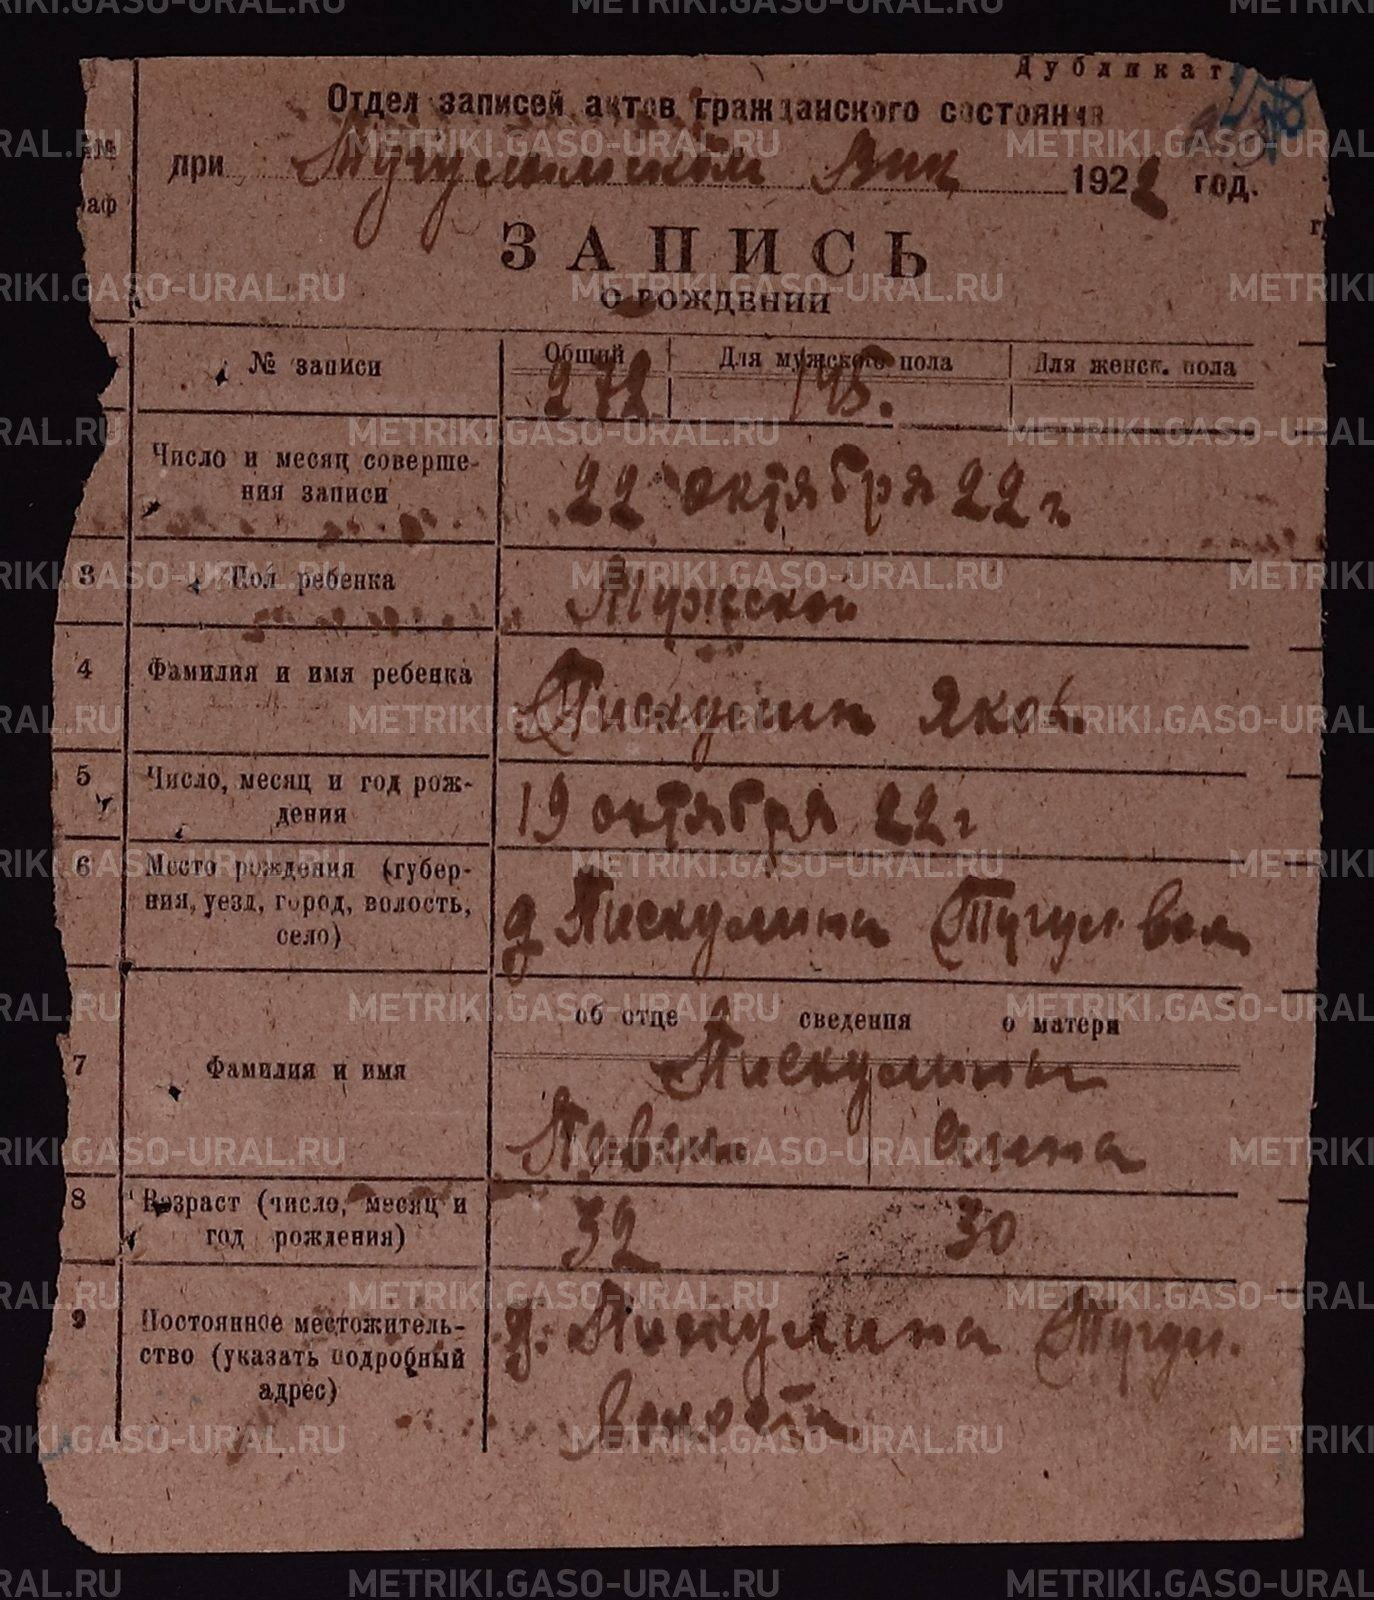 Дубликат.
Отдел записей актов гражданского состояния
при Тугулымском Вик 1922 год.
№№
раф
ЗАПИСЬ
О РОЖДЕНИИ
№ записи
Общий
Для мужского пола
Для женск. пола
272
145.
Число и месяц соверше-
ния записи
22 октября 22 г
3
Пол ребенка
Мужской
4
Фамилия и имя ребенка
Пискулин Яков
5
Число, месяц и год рож-
дения
19 октября 22 г
6
Место рождения (губер-
ния, уезд, город, волость,
село)
д Пискулина Тугул вол
7
Фамилия и имя
об отце сведения о матери
Пискулины
Павел
Анна
8
Возраст (число, месяц и
год рождения)
32
30
9
Постоянное местожитель-
ство (указать подробный
адрес)
д. Пискулина Тугул.
волости
METRIKI.GASO-URAL.RU